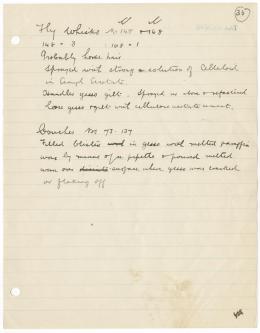 35
Fly Whisks No 147 + 168
148 = 3 168 = 1
Probably horse hair
Sprayed with strong solution of Celluloid
in Amyl Acetate
Handles gesso gilt. Sprayed as above & refastened
loose gesso & gilt with cellulose acetate cement.
Couches No 73 - 137
Filled blisters in gesso with melted paraffin
wax by means of a pipette & poured melted
wax over surface where gesso was cracked
or flaking off